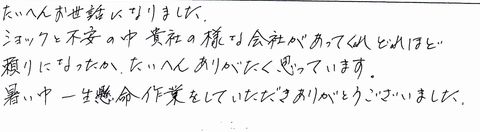 たいへんお世話になりました。
ショックと不安の中 貴社の様な会社があってくれ どれほど
頼りになったか、たいへんありがたく思っています。
暑い中 一生懸命作業をしていただきありがとうございました。